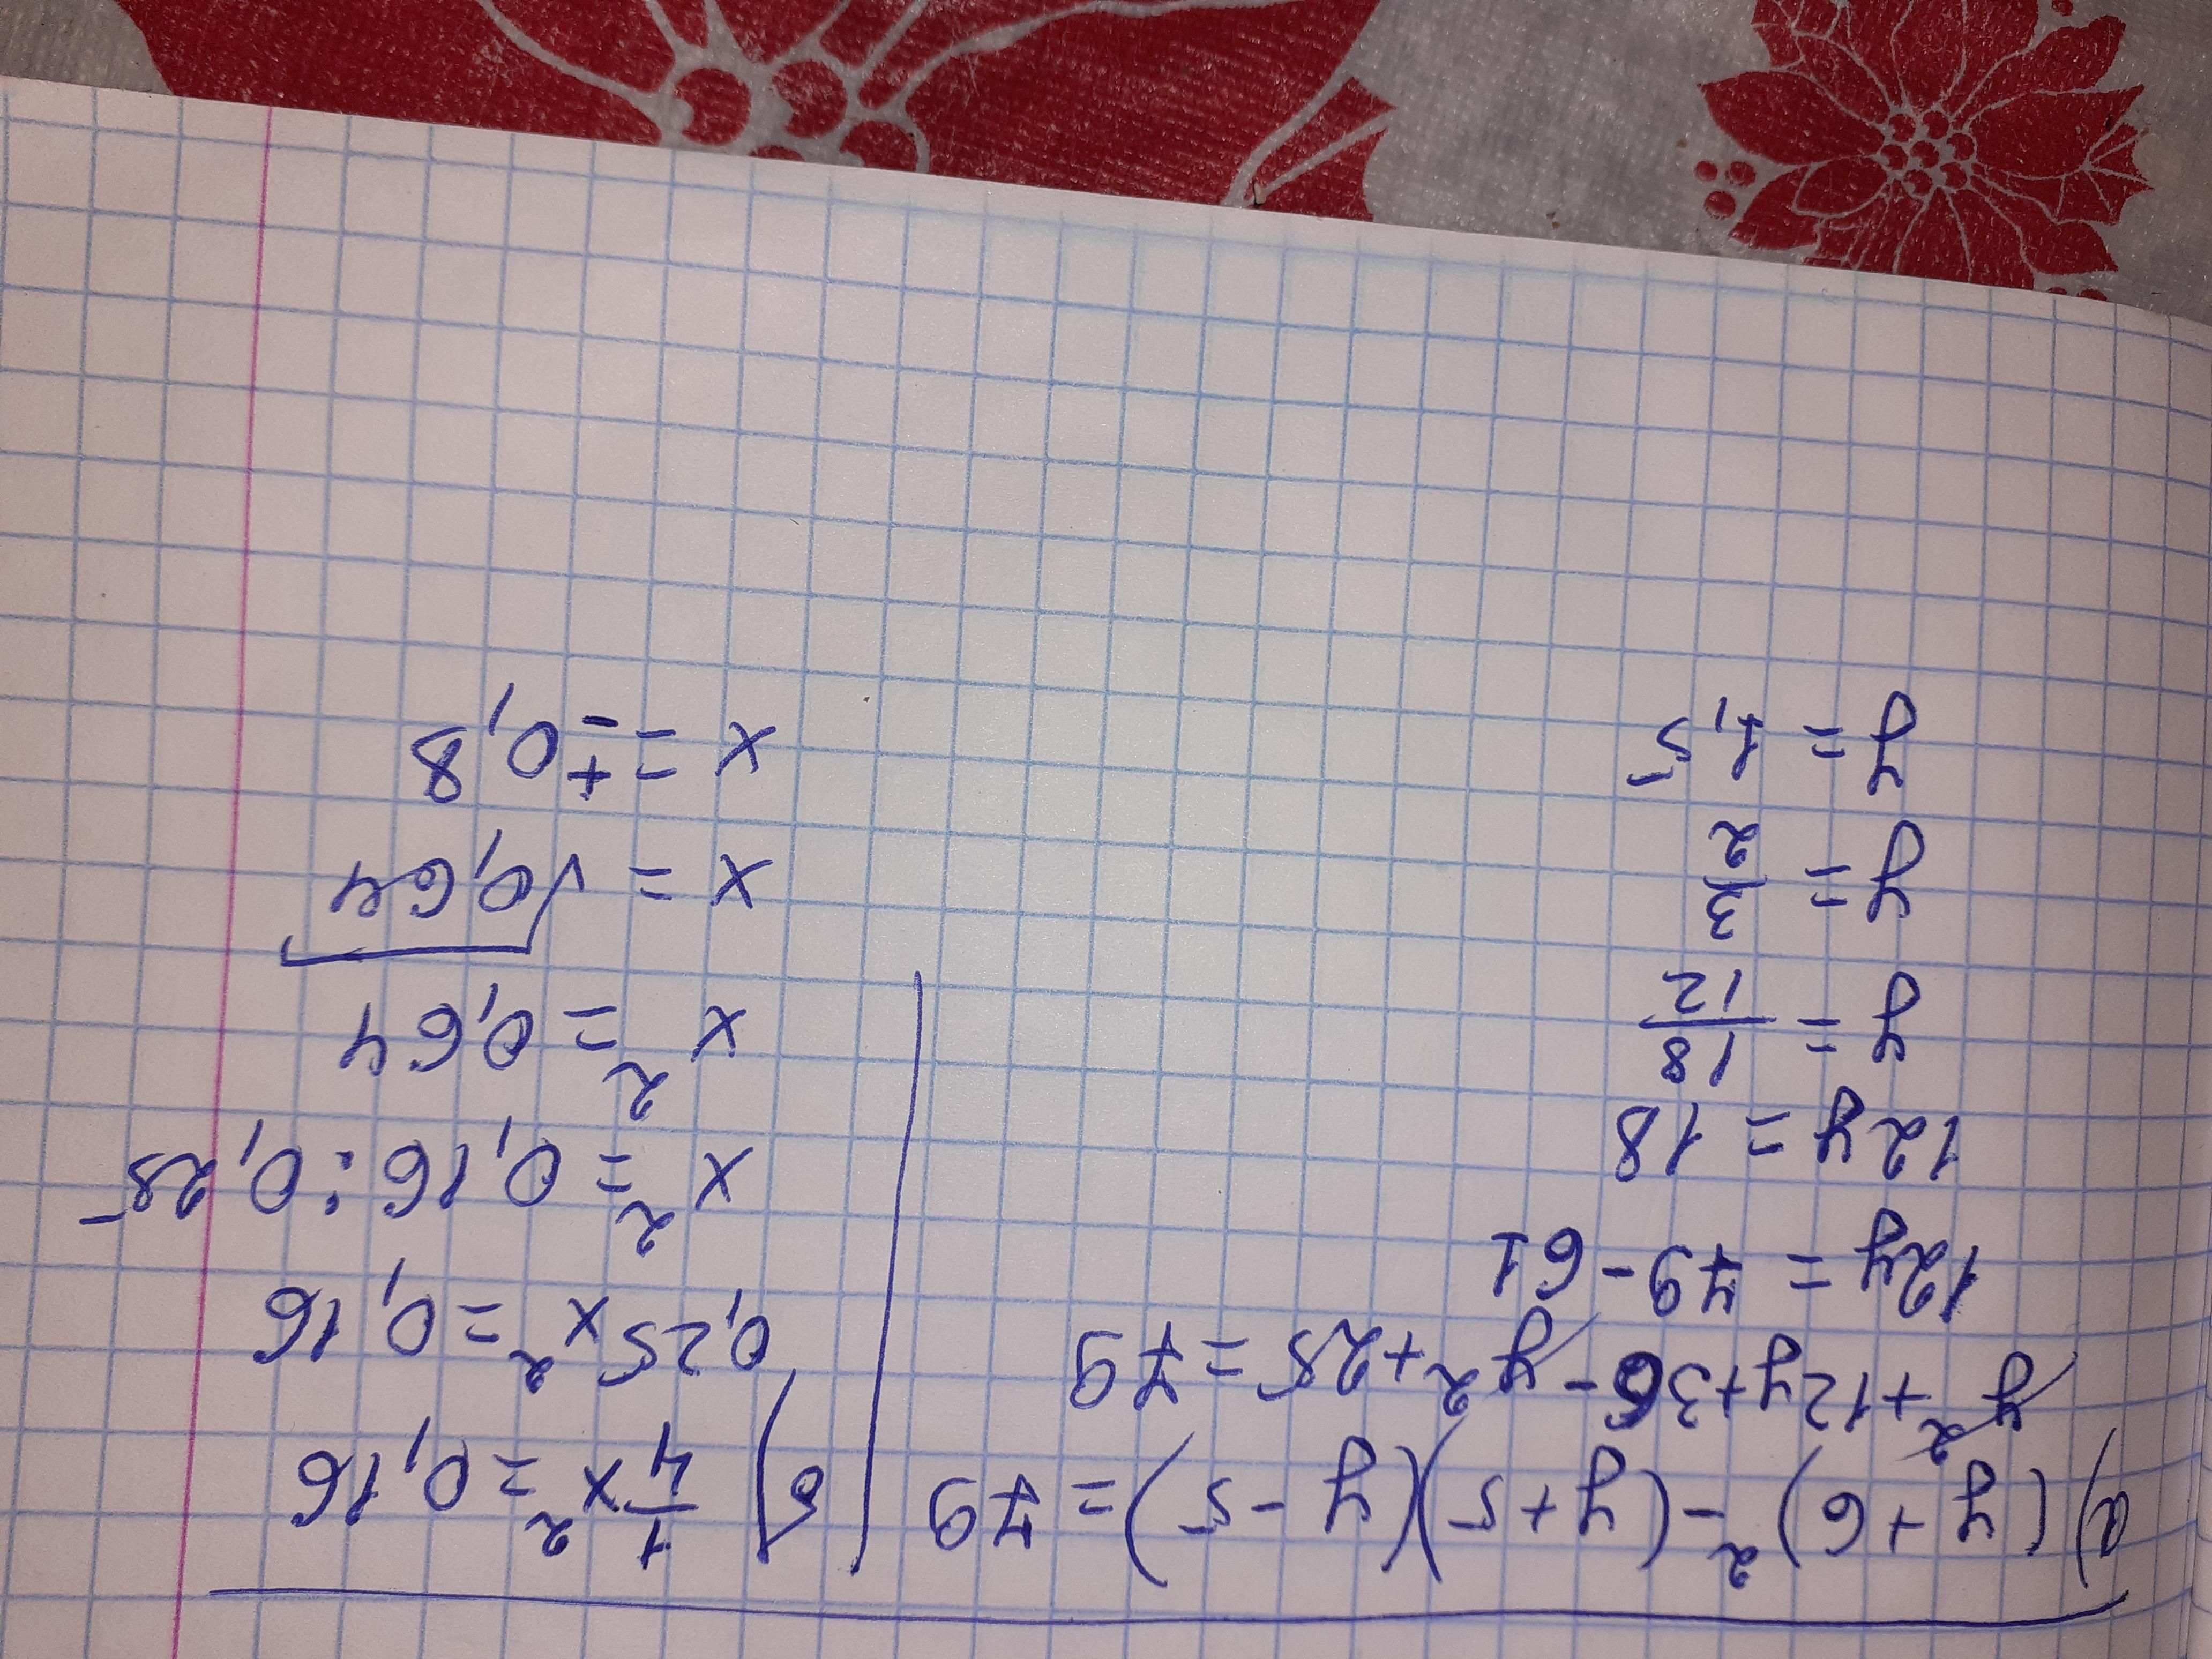 а) (y+6)² - (y+5)(y-5) = 79
y² + 12y + 36 - y² + 25 = 79
12y = 79 - 61
12y = 18
y = 18/12
y = 3/2
y = 1,5
б) 1/4 x² = 0,16
0,25x² = 0,16
x² = 0,16 : 0,25
x² = 0,64
x = √0,64
x = ±0,8